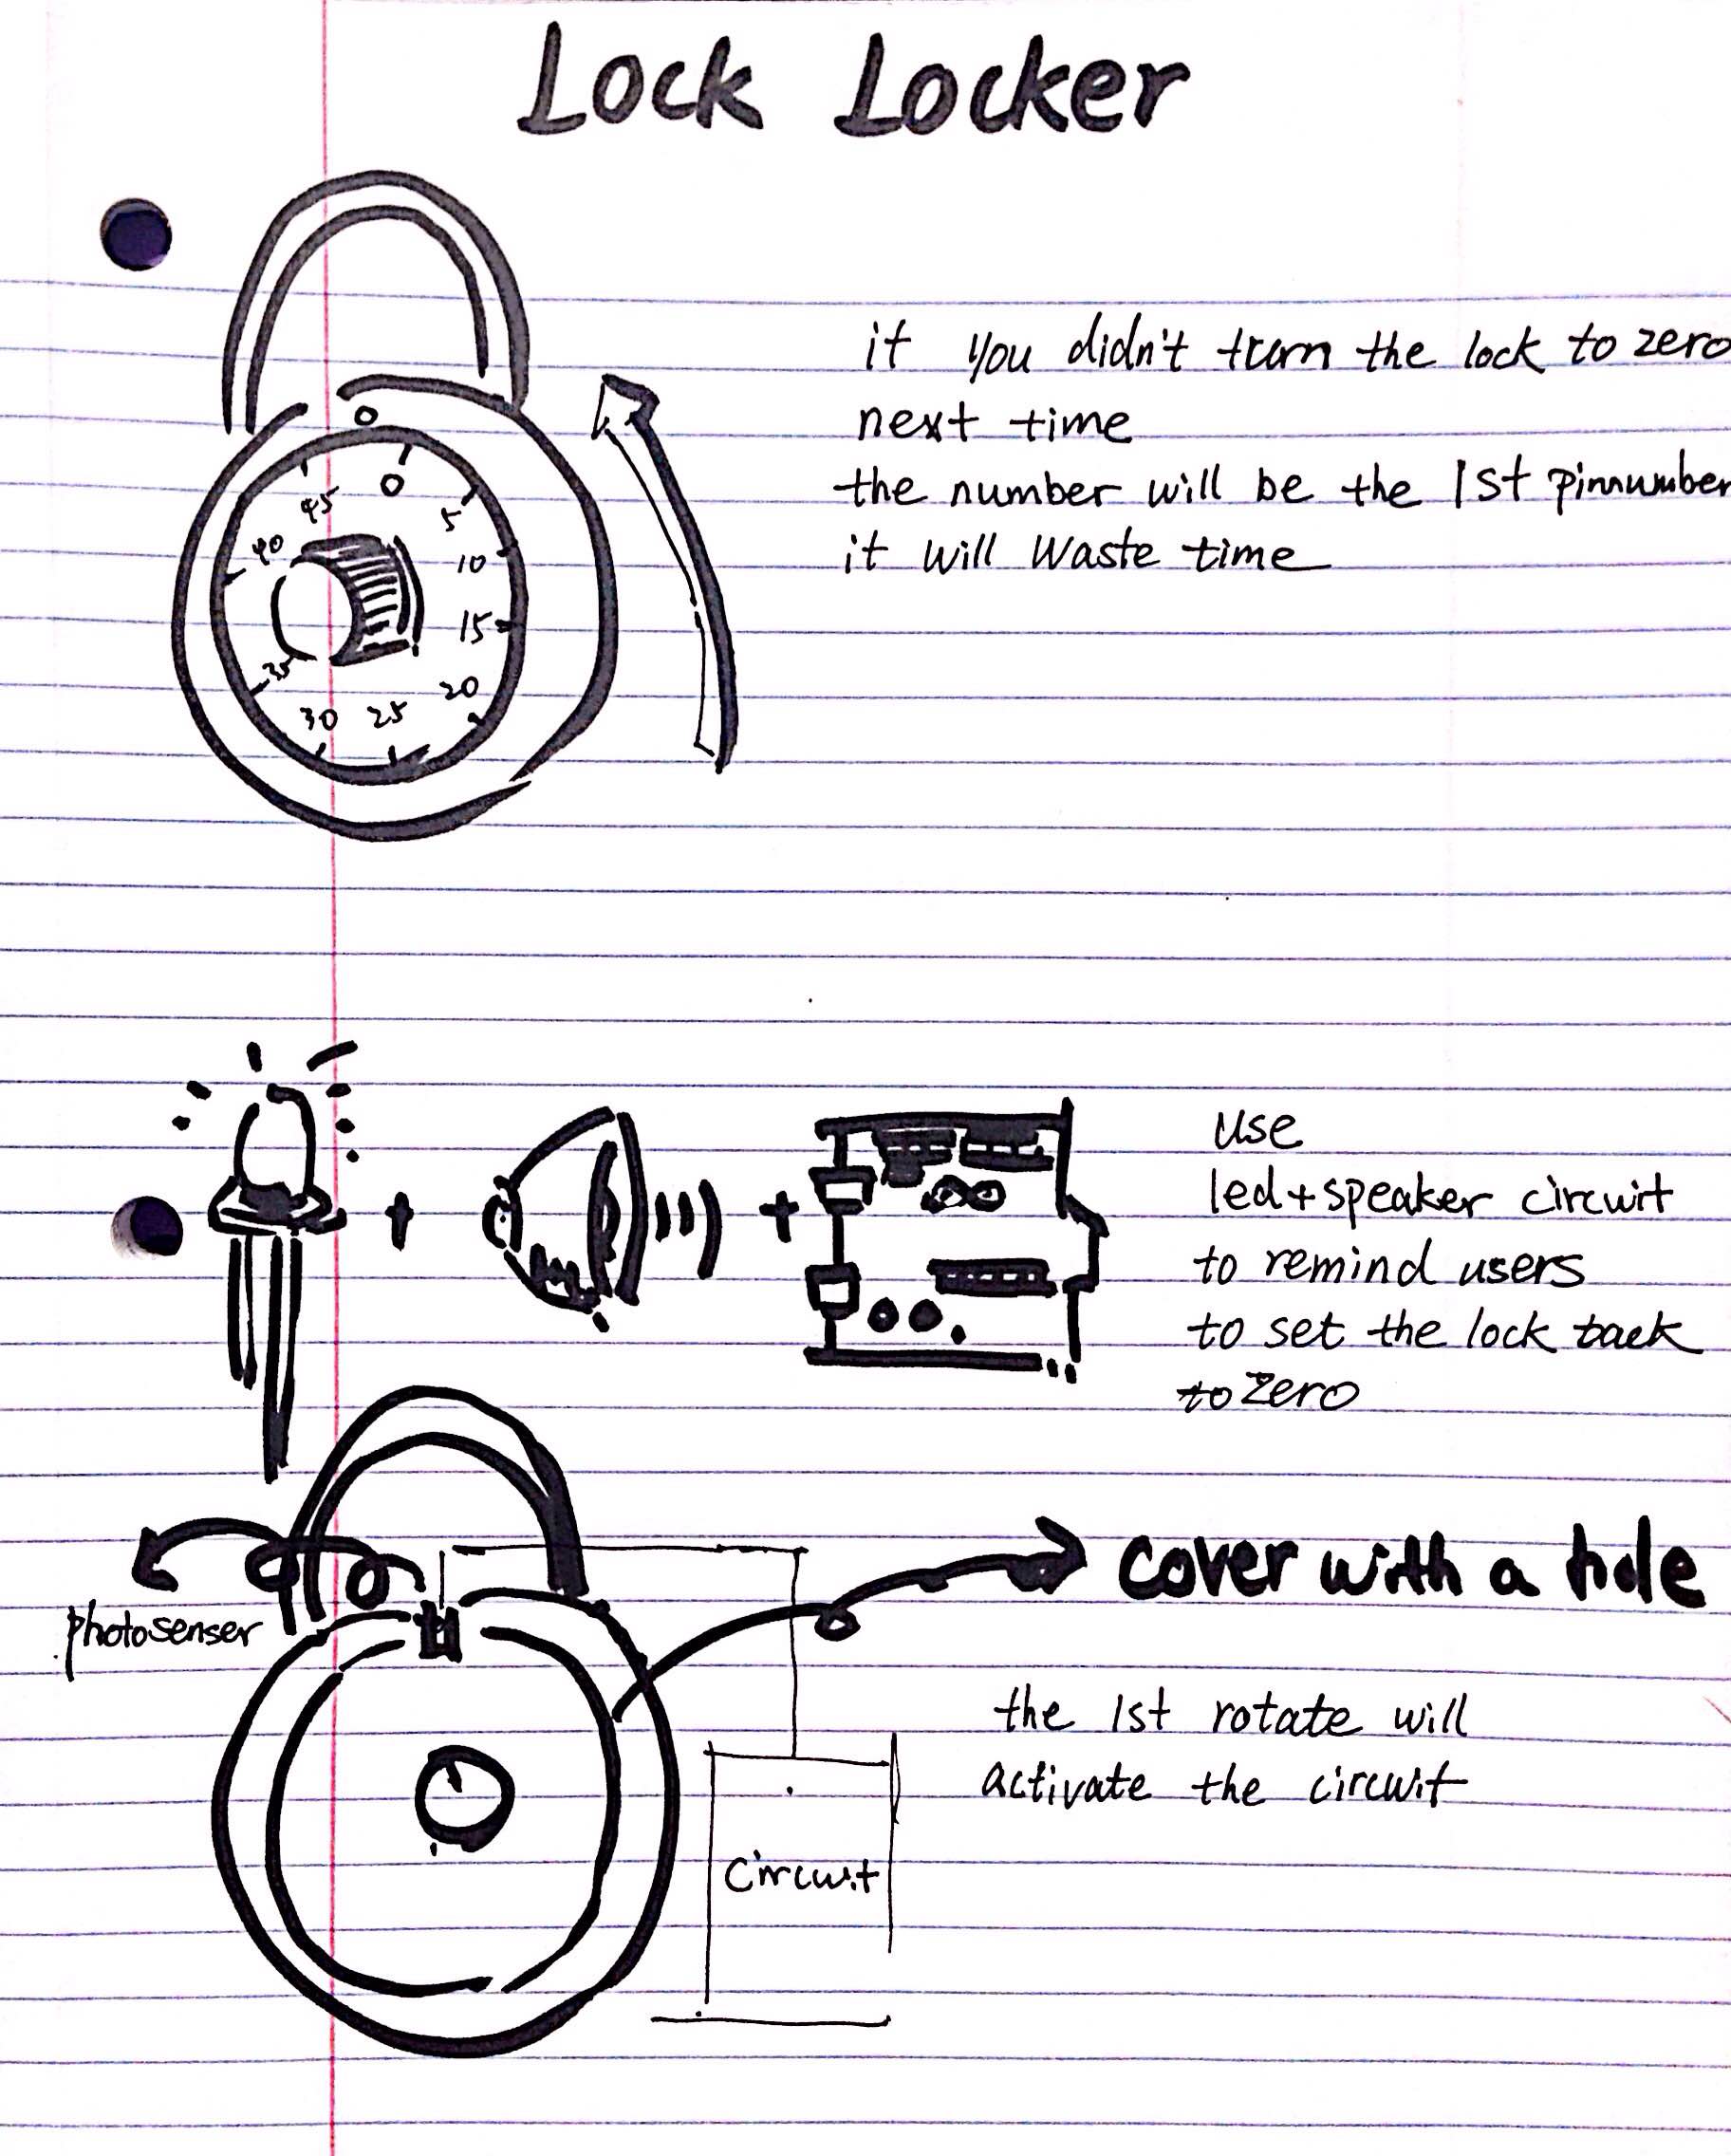 Lock Locker
it you didn't turn the lock to zero
next time
the number will be the 1st pinnumber
it will waste time
0
45
0
5
40
10
15
35
20
30
25
use
led+speaker circuit
to remind users
to set the lock back
to zero
cover with a hole
photosenser
the 1st rotate will
activate the circuit
circuit